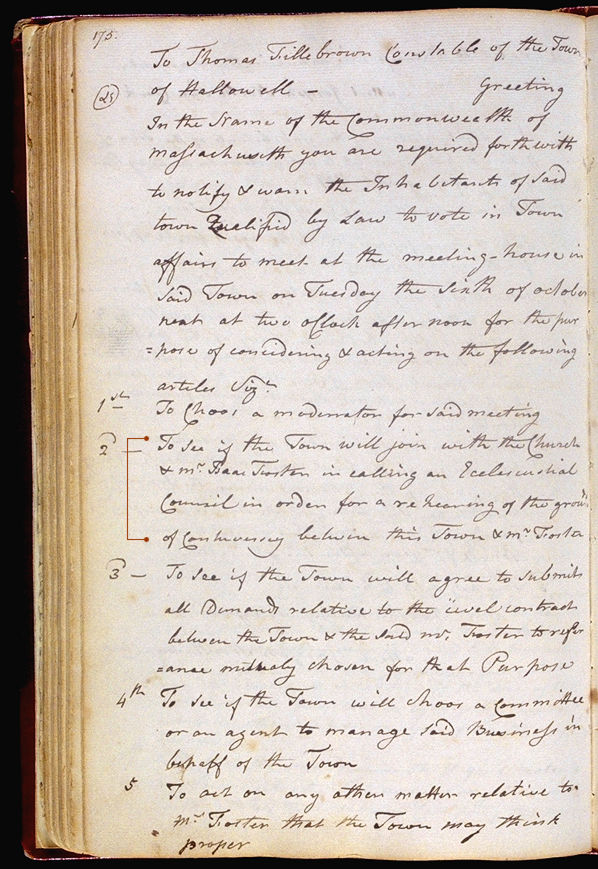 175.
To Thomas Fillebrown Constable of the Town
(25)
of Hallowell – Greeting
In the Name of the Commonwealth of
Massachusetts you are required forthwith
to notify & warn the Inhabitants of Said
town Qualified by Law to vote in Town
affairs to meet at the meeting-house in
Said Town on Tuesday the Sixth of october
next at two oClock after noon for the pur
=pose of considering & acting on the following
articles Viz.t
1st To Choos a moderator for said meeting
2 – To See if the Town will join with the Church
& mr. Isaac Foster in calling an Eclesiastial
Council in order for a rehearing of the grou
of Controversey betwen this Town & mr Foster
3 – To See if the Town will agree to submit
all Demands relative to the civel contract
betwen the Town & the said mr. Foster to refer
=ance mutualy chosen for that Purpose
4th To See if the Town will choos a Committee
or an agent to manage Said Business in
behalf of the Town
5 To act on any other matter relative to
mr Foster that the Town may think
proper